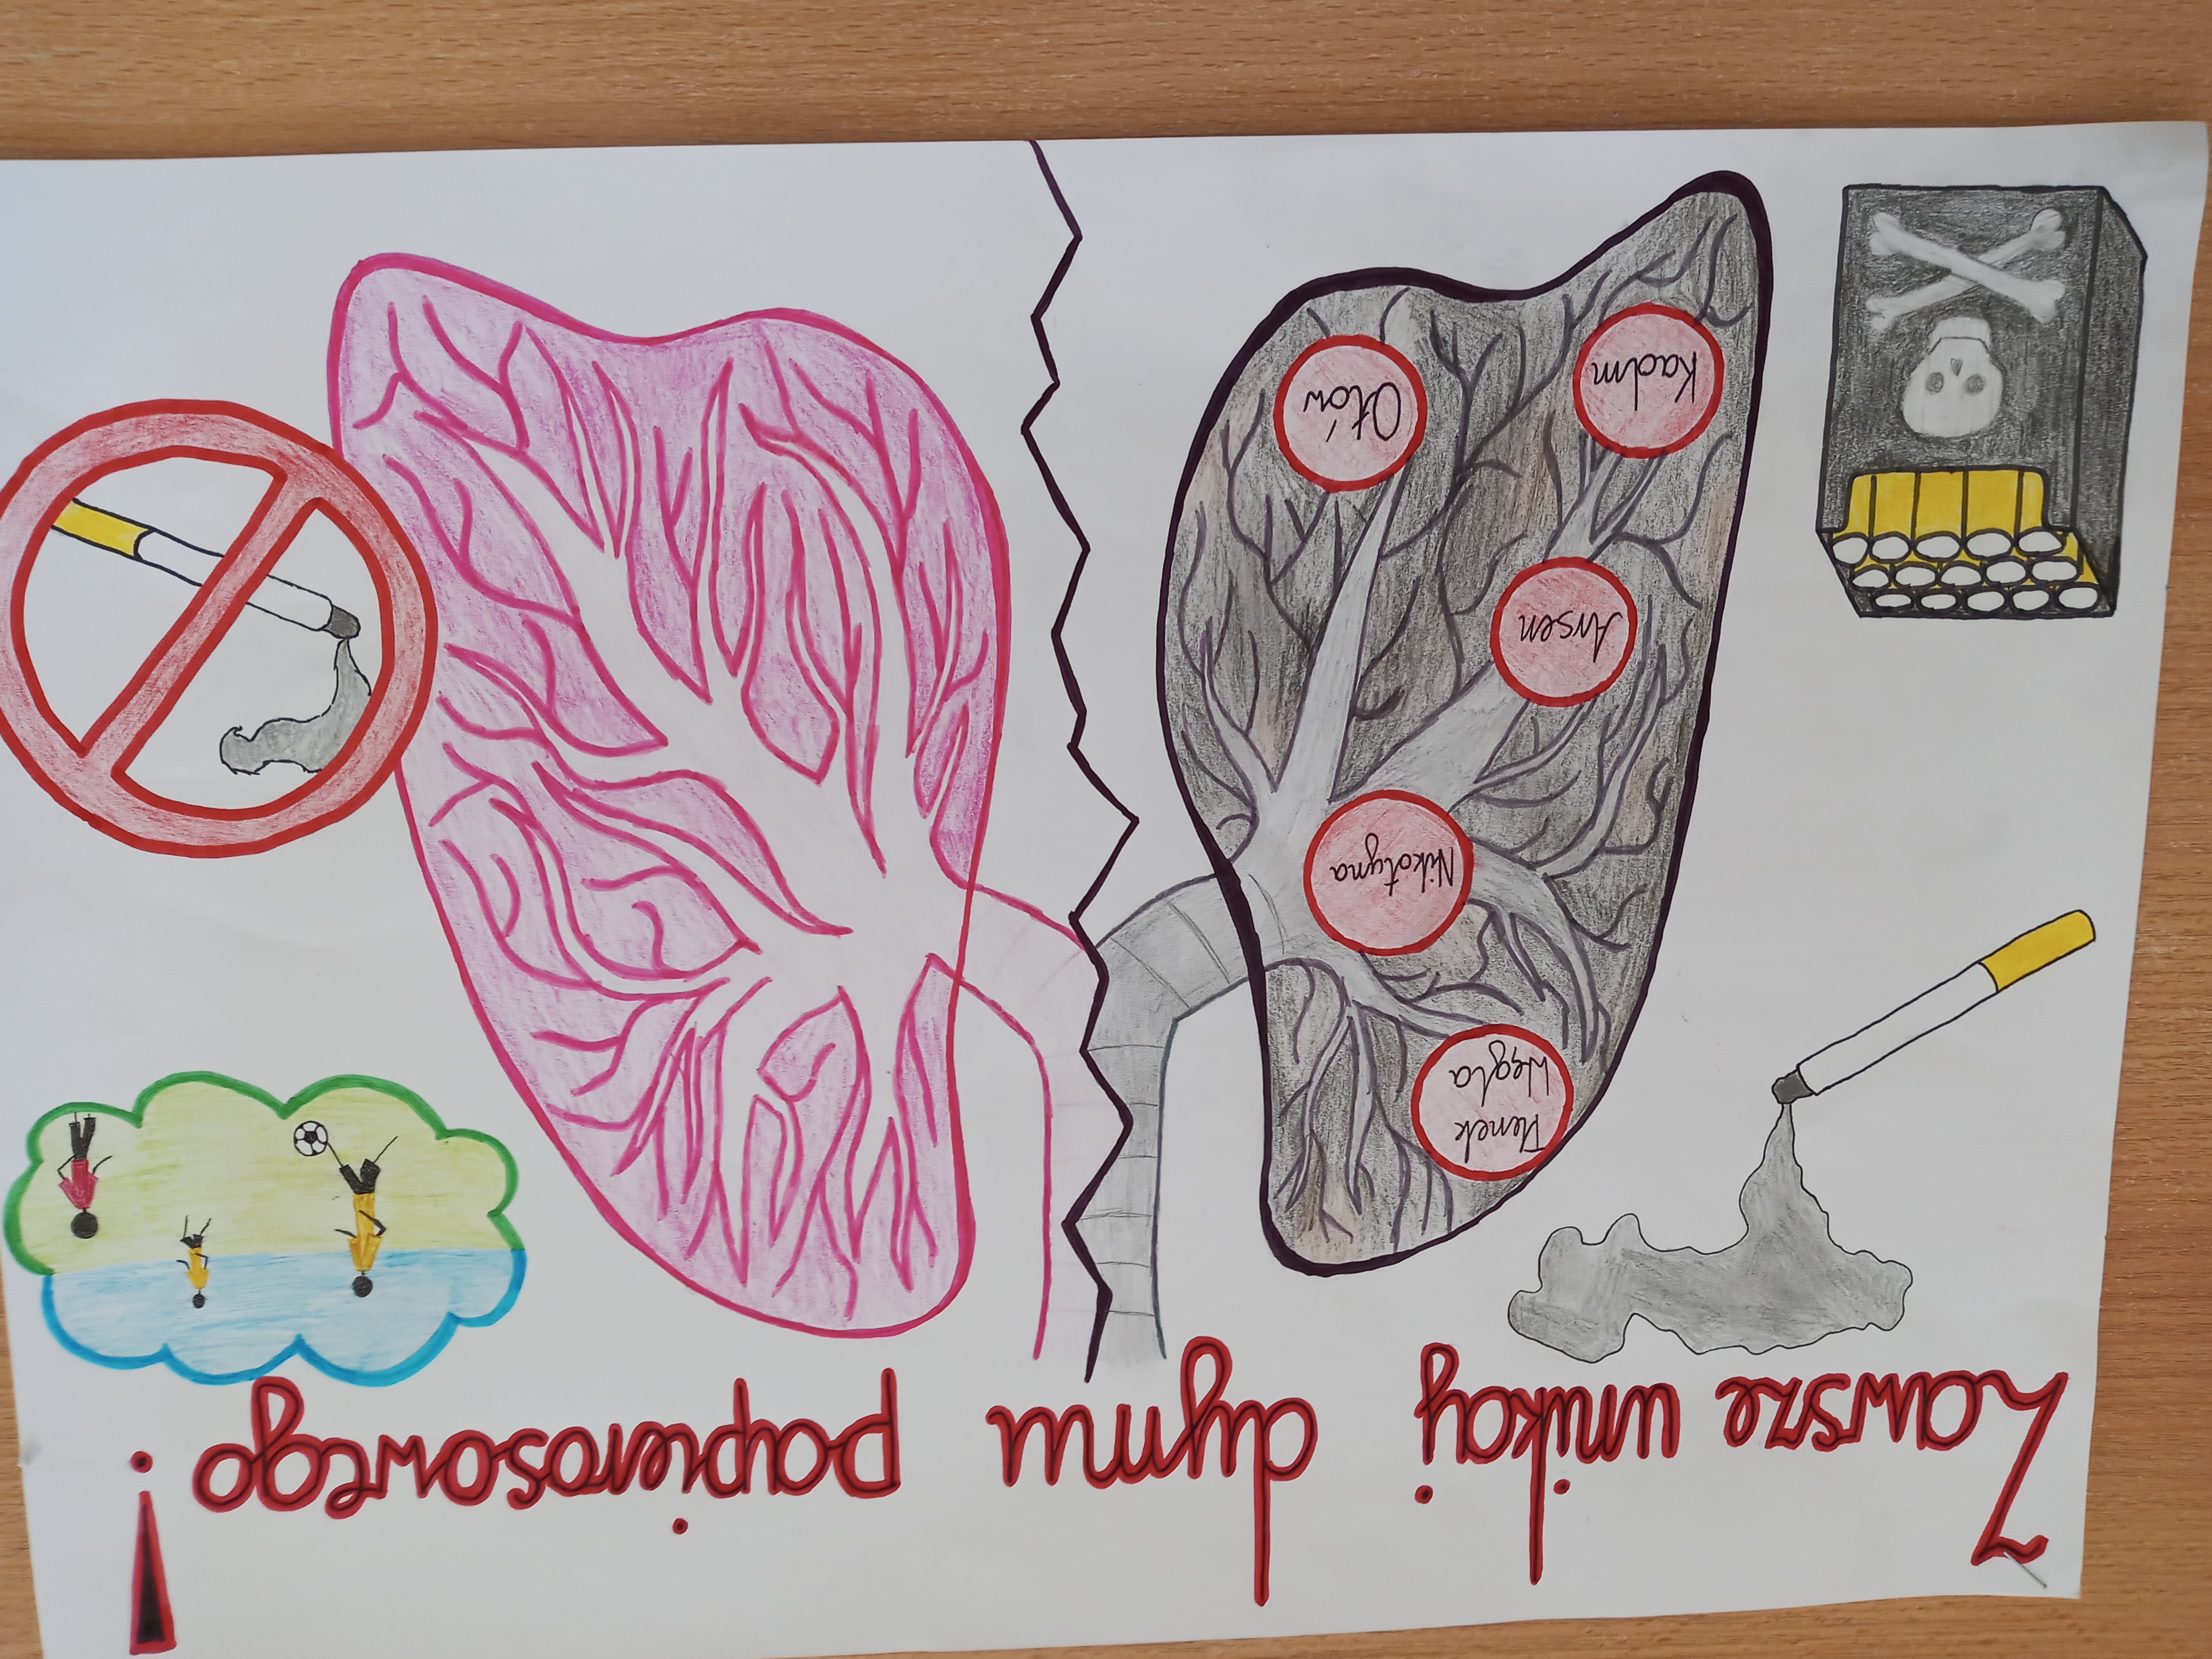 Zawsze unikaj dymu papierosowego!
Tlenek
Węgla
Nikotyna
Arsen
Ołów
Kadm